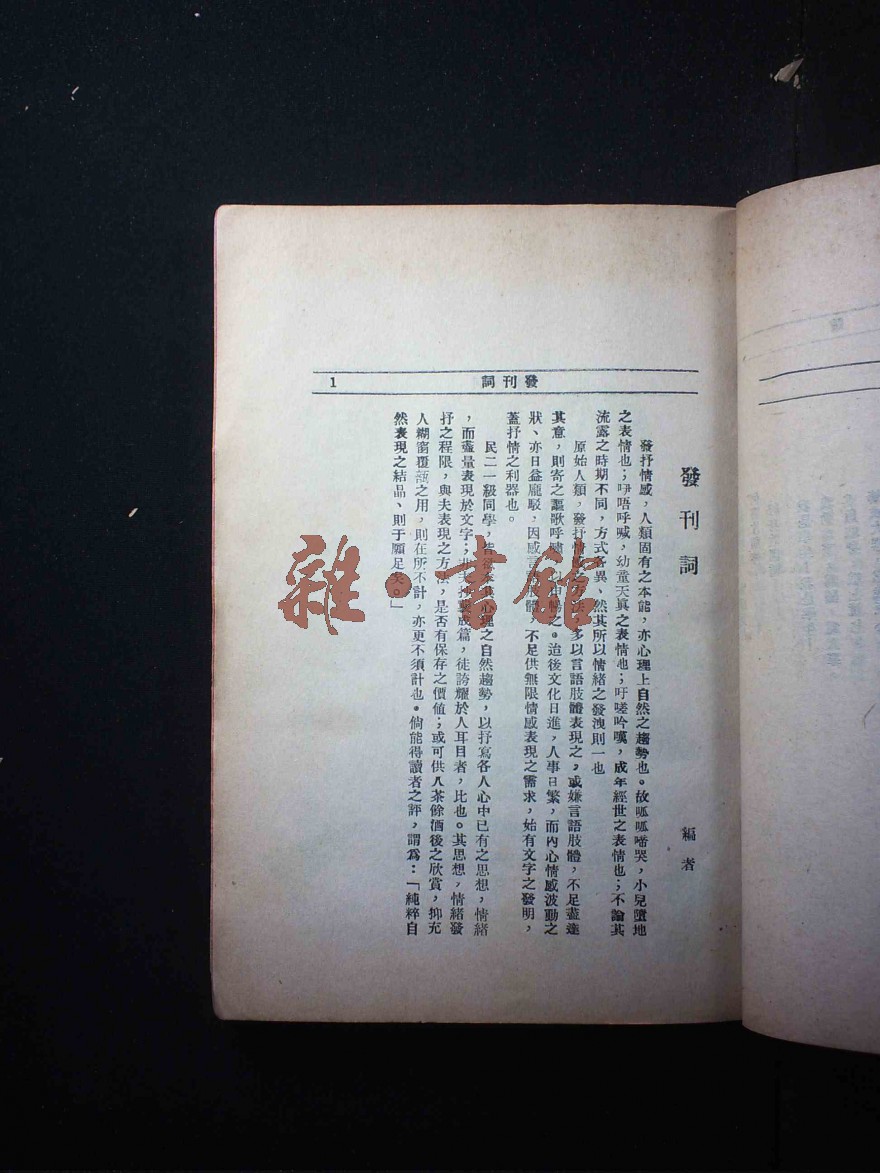 1
詞刊發
發刊詞
編者
發抒情感，人類固有之本能，亦心理上自然之趨勢也。故呱呱啼哭，小兒墮地
之表情也；咿唔呼喊，幼童天眞之表情也；吁嗟吟嘆，成年經世之表情也；不論其
流露之時期不同，方式各異、然其所以情緒之發洩則一也
原始人類，發抒情感之方法，多以言語肢體表現之，或嫌言語肢體，不足盡達
其意，則寄之謳歌呼嘯，以申暢之。迨後文化日進，人事日繁，而內心情感波動之
狀、亦日益龐駁，因感言語肢體，不足供無限情感表現之需求，始有文字之發明，
蓋抒情之利器也。
民二一級同學，皆心理之自然趨勢，以抒寫各人心中已有之思想，情緒
，而盡量表現於文字；成篇，徒誇耀於人耳目者，比也。其思想，情緒發
抒之程限，與夫表現之方法，是否有保存之價值；或可供人茶餘酒後之欣賞，抑充
人糊窗覆瓿之用，則在所不計，亦更不須計也。倘能得讀者之評，謂爲：「純粹自
然表現之結晶、則于願足矣。」
雜·書館